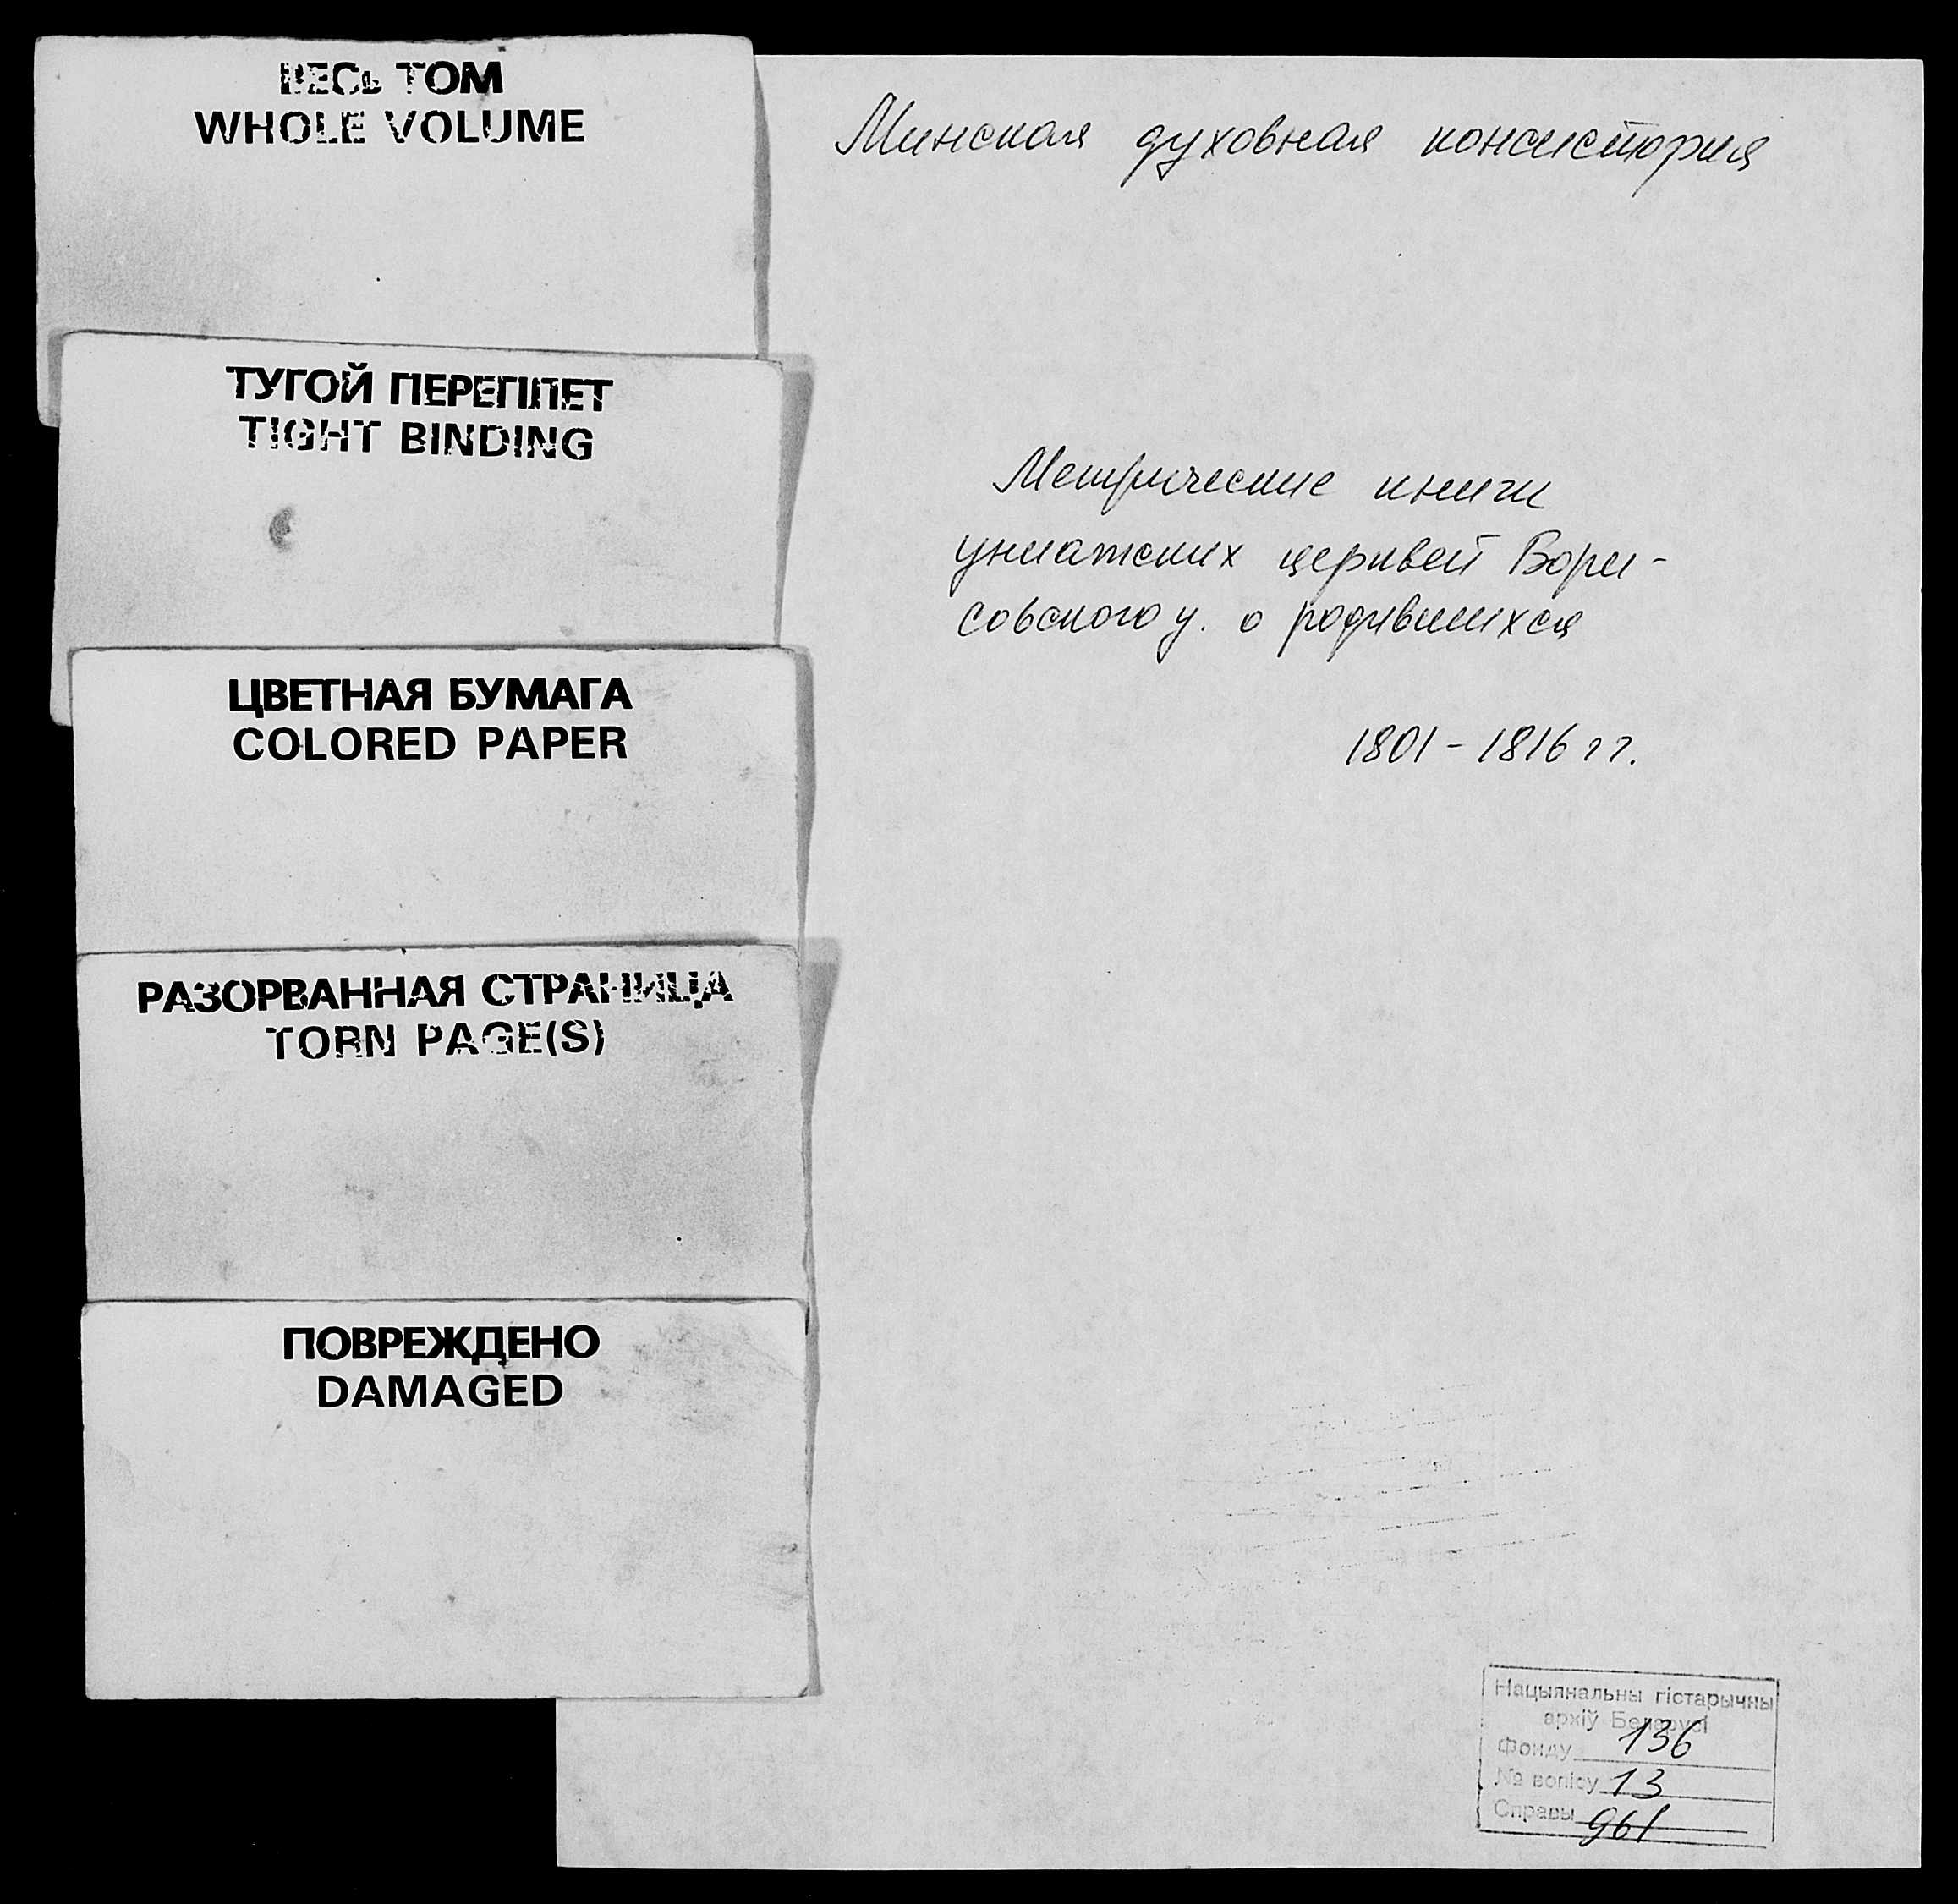 ВЕСЬ ТОМ
WHOLE VOLUME
ТУГОЙ ПЕРЕПЛЕТ
TIGHT BINDING
ЦВЕТНАЯ БУМАГА
COLORED PAPER
РАЗОРВАННАЯ СТРАНИЦА
TORN PAGE(S)
ПОВРЕЖДЕНО
DAMAGED
Минская духовная консистория
Метрические книги
униатских церквей Бори-
совского у. о родившихся
1801 - 1816 гг.
Нацыянальны гістарычны
архіў Беларусі
Фонду 136
№ вопісу 13
Справы 961